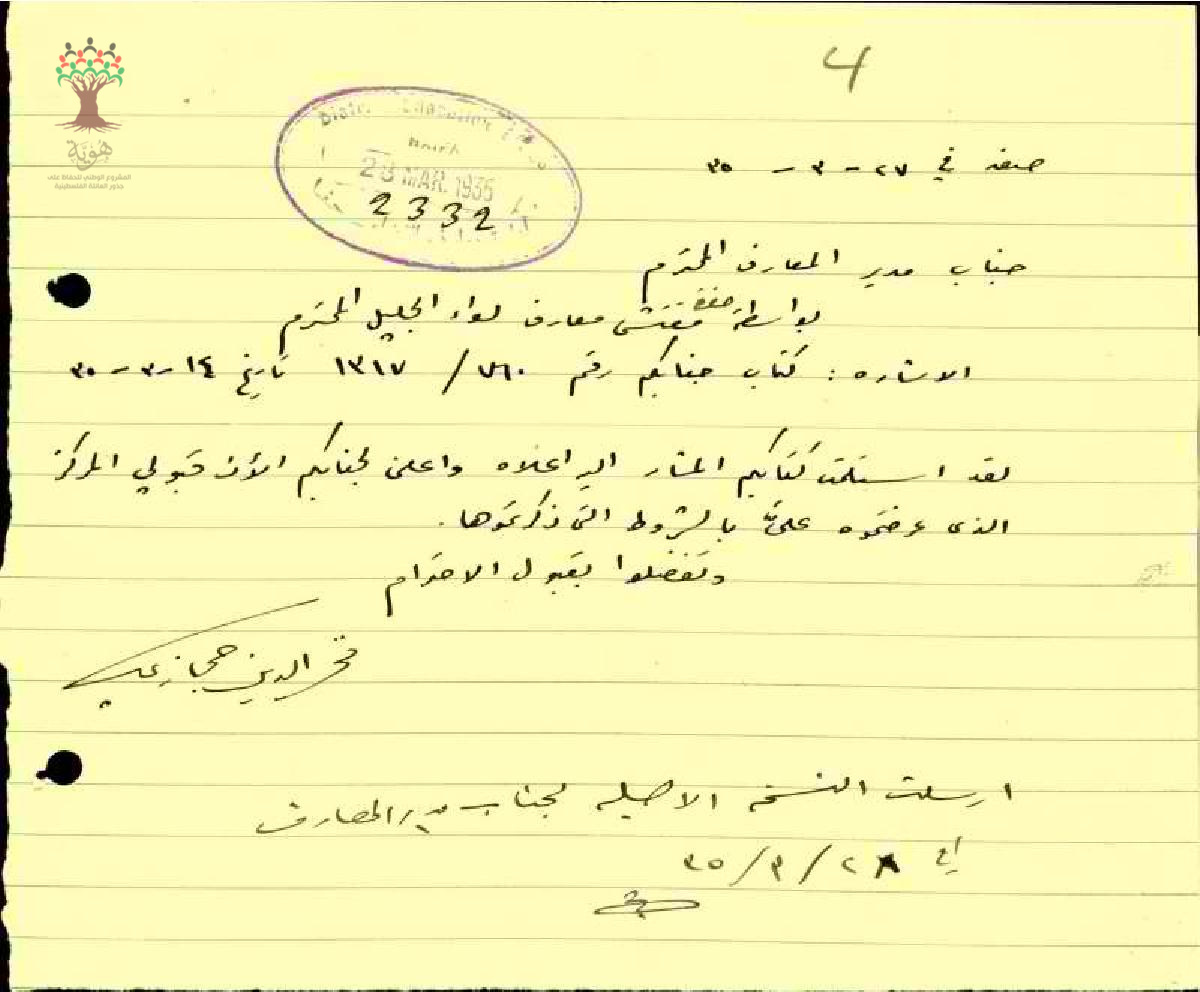 4
هوية
المشروع الوطني للحفاظ على
جذور العائلة الفلسطينية
District Education
HAIFA
28 MAR. 1935
2332
صفد في ٢٧ - ٣ - ٣٥
جناب مدير المعارف المحترم
بواسطة حضرة مفتش معارف لواء الجليل المحترم
الاشاره : كتاب جنابكم رقم ٧٦٠ / ١٣١٧ تاريخ ١٤ - ٣ - ٣٥
لقد استلمت كتابكم المشار اليه اعلاه واعلن لجنابكم الآن قبولي المركز
الذى عرضتموه عليَّ بالشروط التى ذكرتموها.
وتفضلوا بقبول الاحترام
فخر الدين حجازي
ارسلت النسخه الاصليه لجناب مدير المعارف
في ٢٨ / ٣ / ٣٥